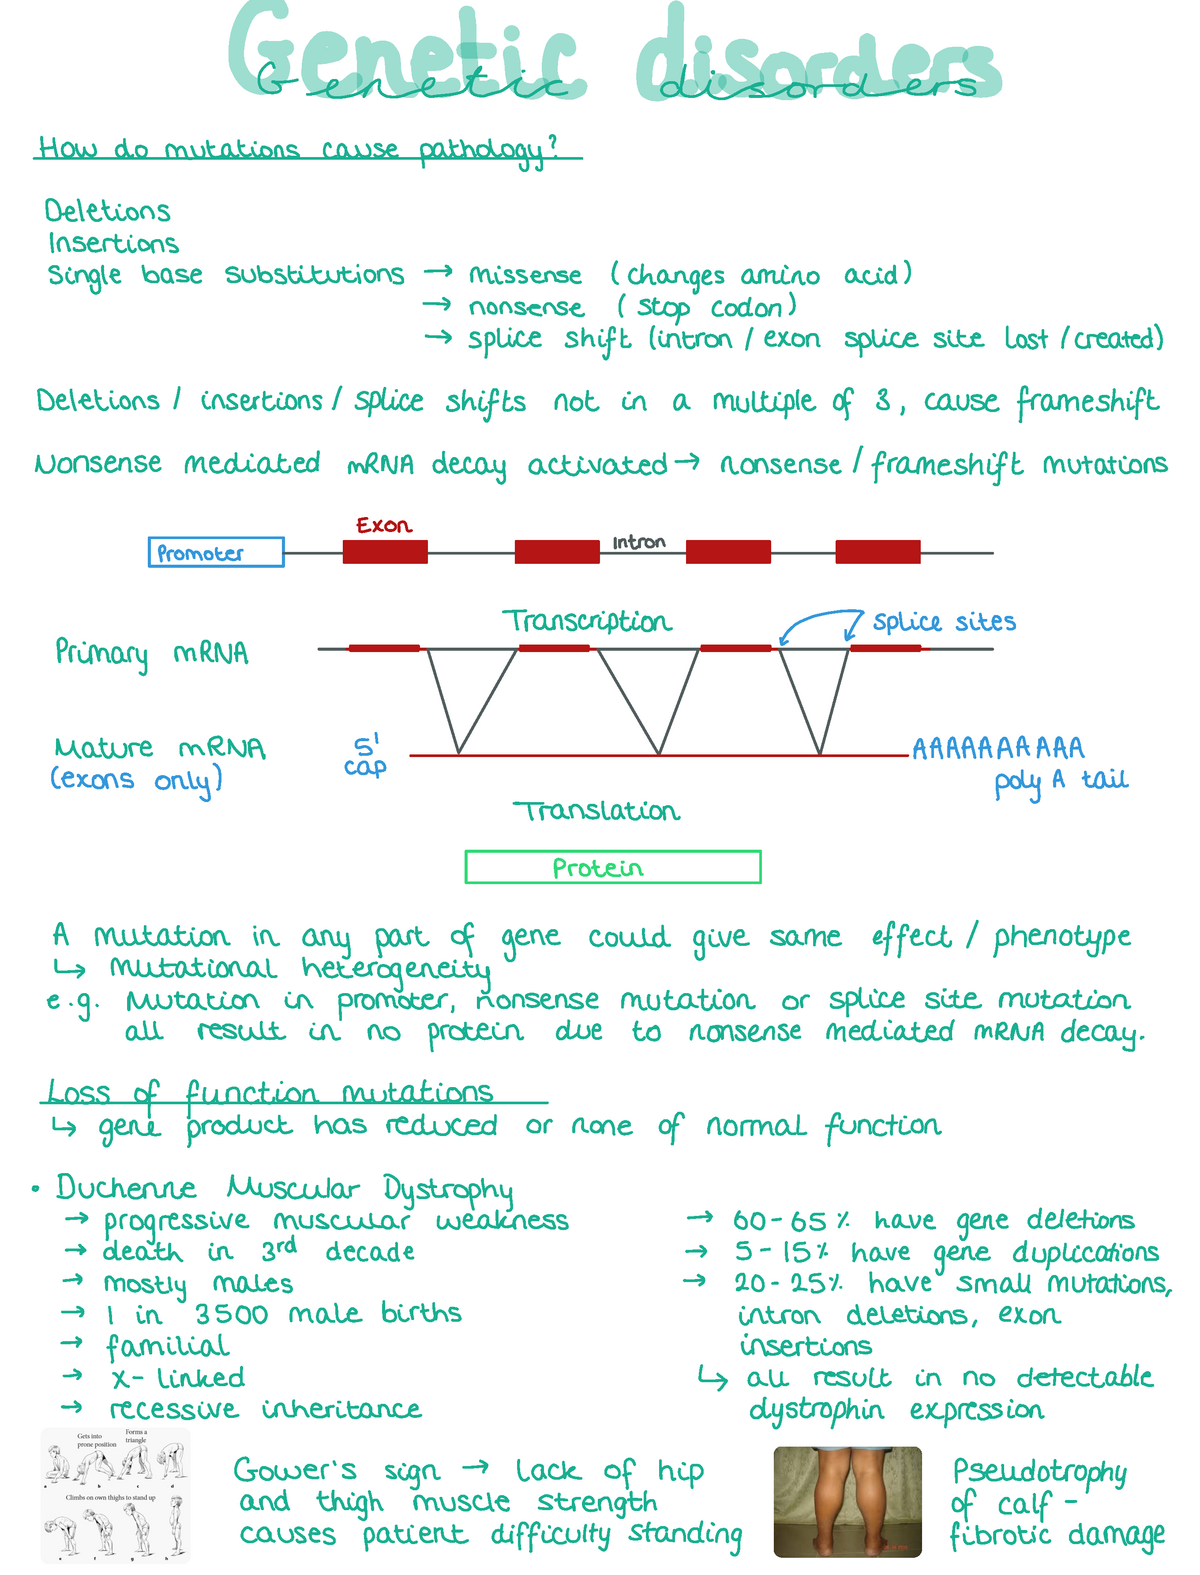 Genetic disorders
Genetic disorders
How do mutations cause pathology?
Deletions
Insertions
Single base substitutions → missense (changes amino acid)
→ nonsense (stop codon)
→ splice shift (intron / exon splice site lost / created)
Deletions / insertions / splice shifts not in a multiple of 3, cause frameshift
Nonsense mediated mRNA decay activated → nonsense / frameshift mutations
Exon
Promoter
Intron
Transcription
splice sites
Primary mRNA
Mature mRNA
(exons only)
5'
cap
AAAAAAAAAA
poly A tail
Translation
Protein
A mutation in any part of gene could give same effect / phenotype
↳ Mutational heterogeneity
e.g. Mutation in promoter, nonsense mutation or splice site mutation
all result in no protein due to nonsense mediated mRNA decay.
Loss of function mutations
↳ gene product has reduced or none of normal function
• Duchenne Muscular Dystrophy
→ progressive muscular weakness
→ death in 3rd decade
→ mostly males
→ 1 in 3500 male births
→ familial
→ x-linked
→ recessive inheritance
→ 60-65% have gene deletions
→ 5-15% have gene duplications
→ 20-25% have small mutations,
intron deletions, exon
insertions
↳ all result in no detectable
dystrophin expression
Gets into
prone position
Forms a
triangle
a b c d
Climbs on own thighs to stand up
e f g h
Gower's sign → lack of hip
and thigh muscle strength
causes patient difficulty standing
Pseudotrophy
of calf -
fibrotic damage